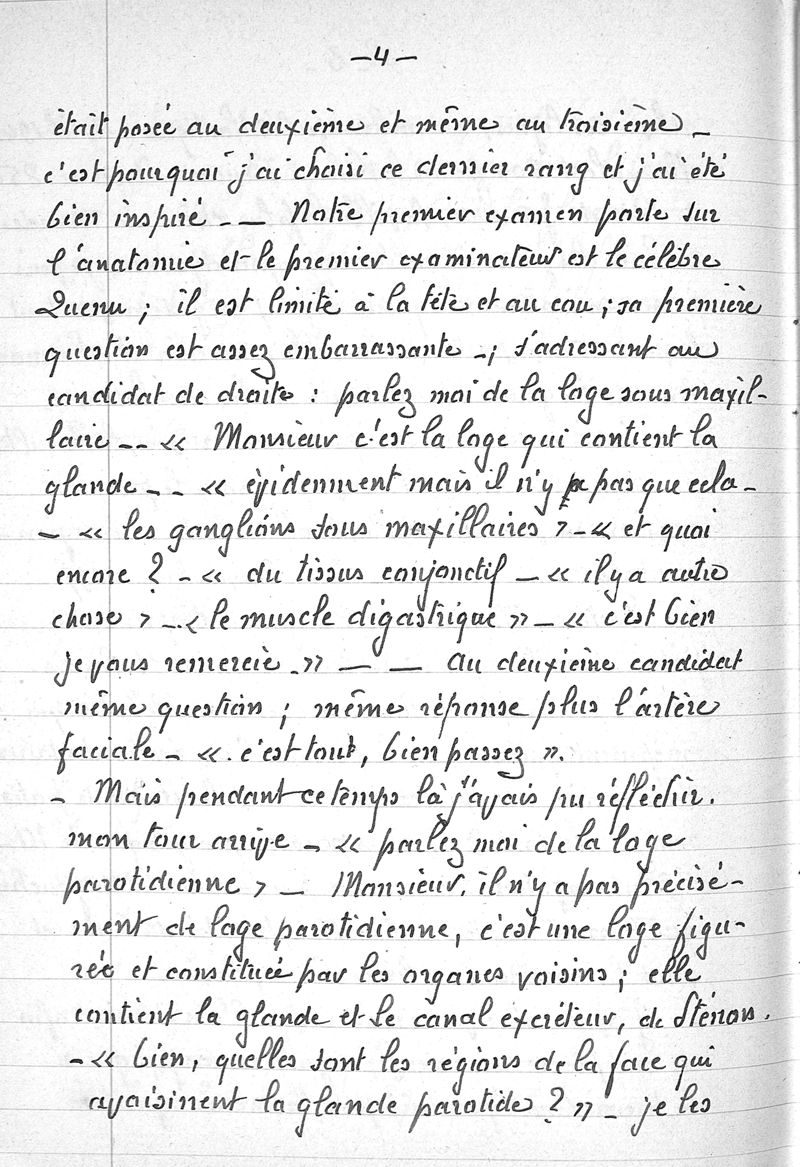 —4—
était posée au deuxième et même au troisième _
c'est pourquoi j'ai choisi ce dernier rang et j'ai été
bien inspiré _ — Notre premier examen porte sur
l'anatomie et le premier examinateur est le célèbre
Quenu ; il est limité à la tête et au cou ; sa première
question est assez embarrassante _ ; s'adressant au
candidat de droite : parlez moi de la loge sous maxil-
laire _ _ « Monsieur c'est la loge qui contient la
glande _ _ « évidemment mais il n'y a pas que cela _
_ « les ganglions sous maxillaires > _ « et quoi
encore ? _ « du tissus conjonctif _ « il y a autre
chose > _ « le muscle digastrique » _ « c'est bien
je vous remercie _ » — — au deuxième candidat
même question ; même réponse plus l'artère
faciale _ « . c'est tout, bien passez ».
_ Mais pendant ce temps là j'avais pu réfléchir.
mon tour arrive _ « parlez moi de la loge
parotidienne > _ Monsieur, il n'y a pas précisé-
ment de loge parotidienne, c'est une loge figu-
rée et constituée par les organes voisins ; elle
contient la glande et le canal excréteur, de Sténon.
_ « bien, quelles sont les régions de la face qui
avoisinent la glande parotide ? » _ je les